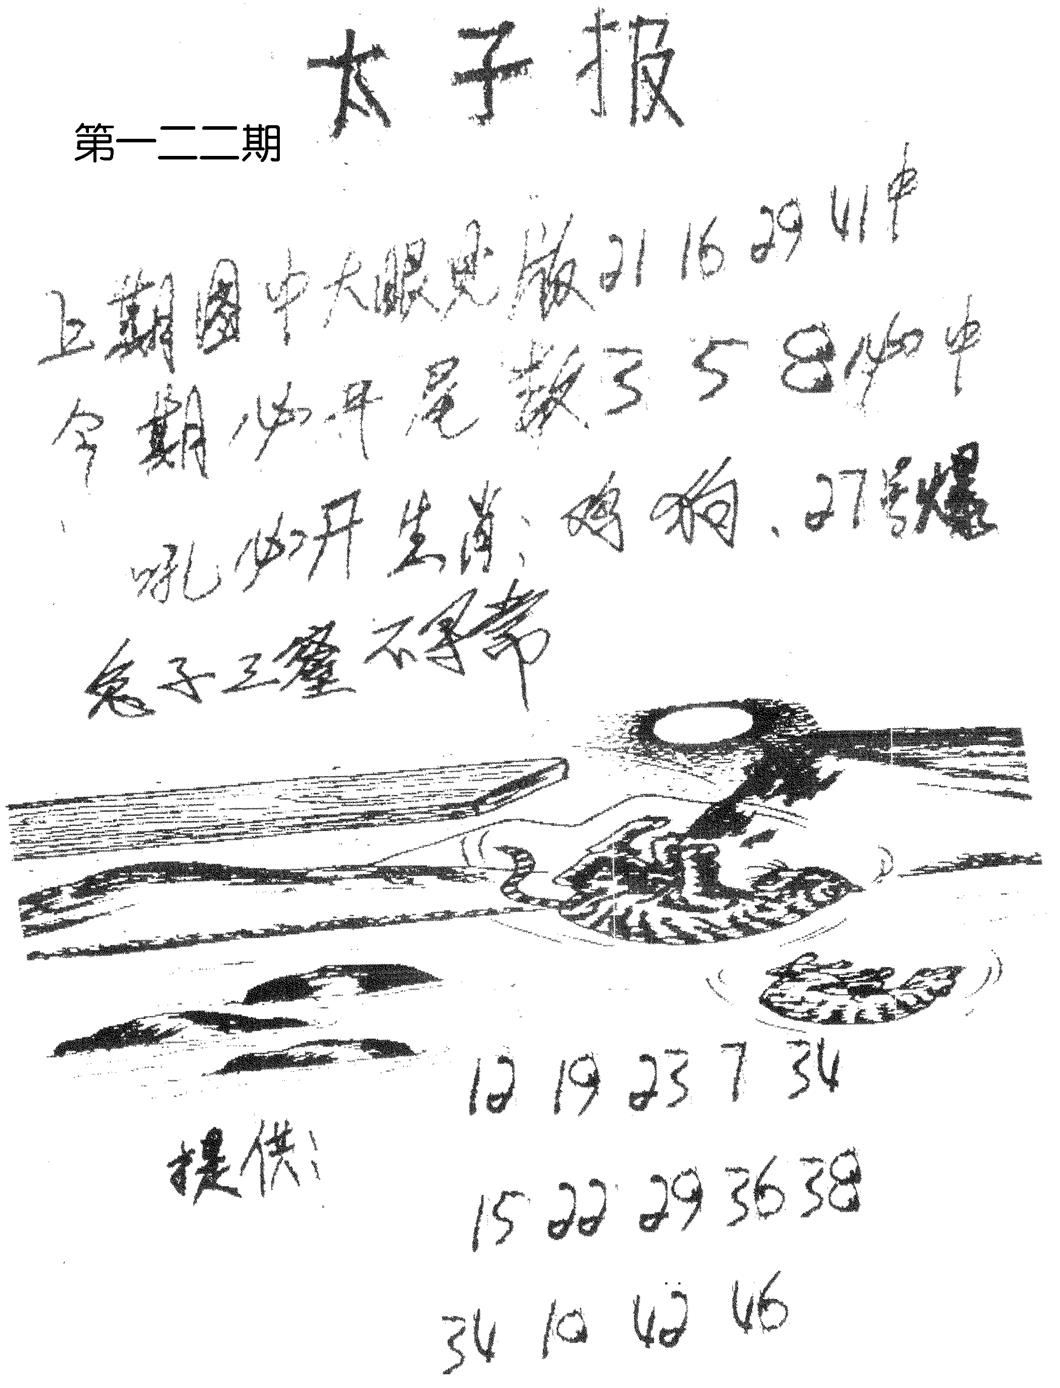 太子报
第一二二期
上期图中大眼见版21 16 29 41中
今期必开尾数3 5 8必中
吼必开生肖:鸡狗、27号爆
兔子三窿不寻常
12 19 23 7 34
提供:
15 22 29 36 38
34 19 42 46